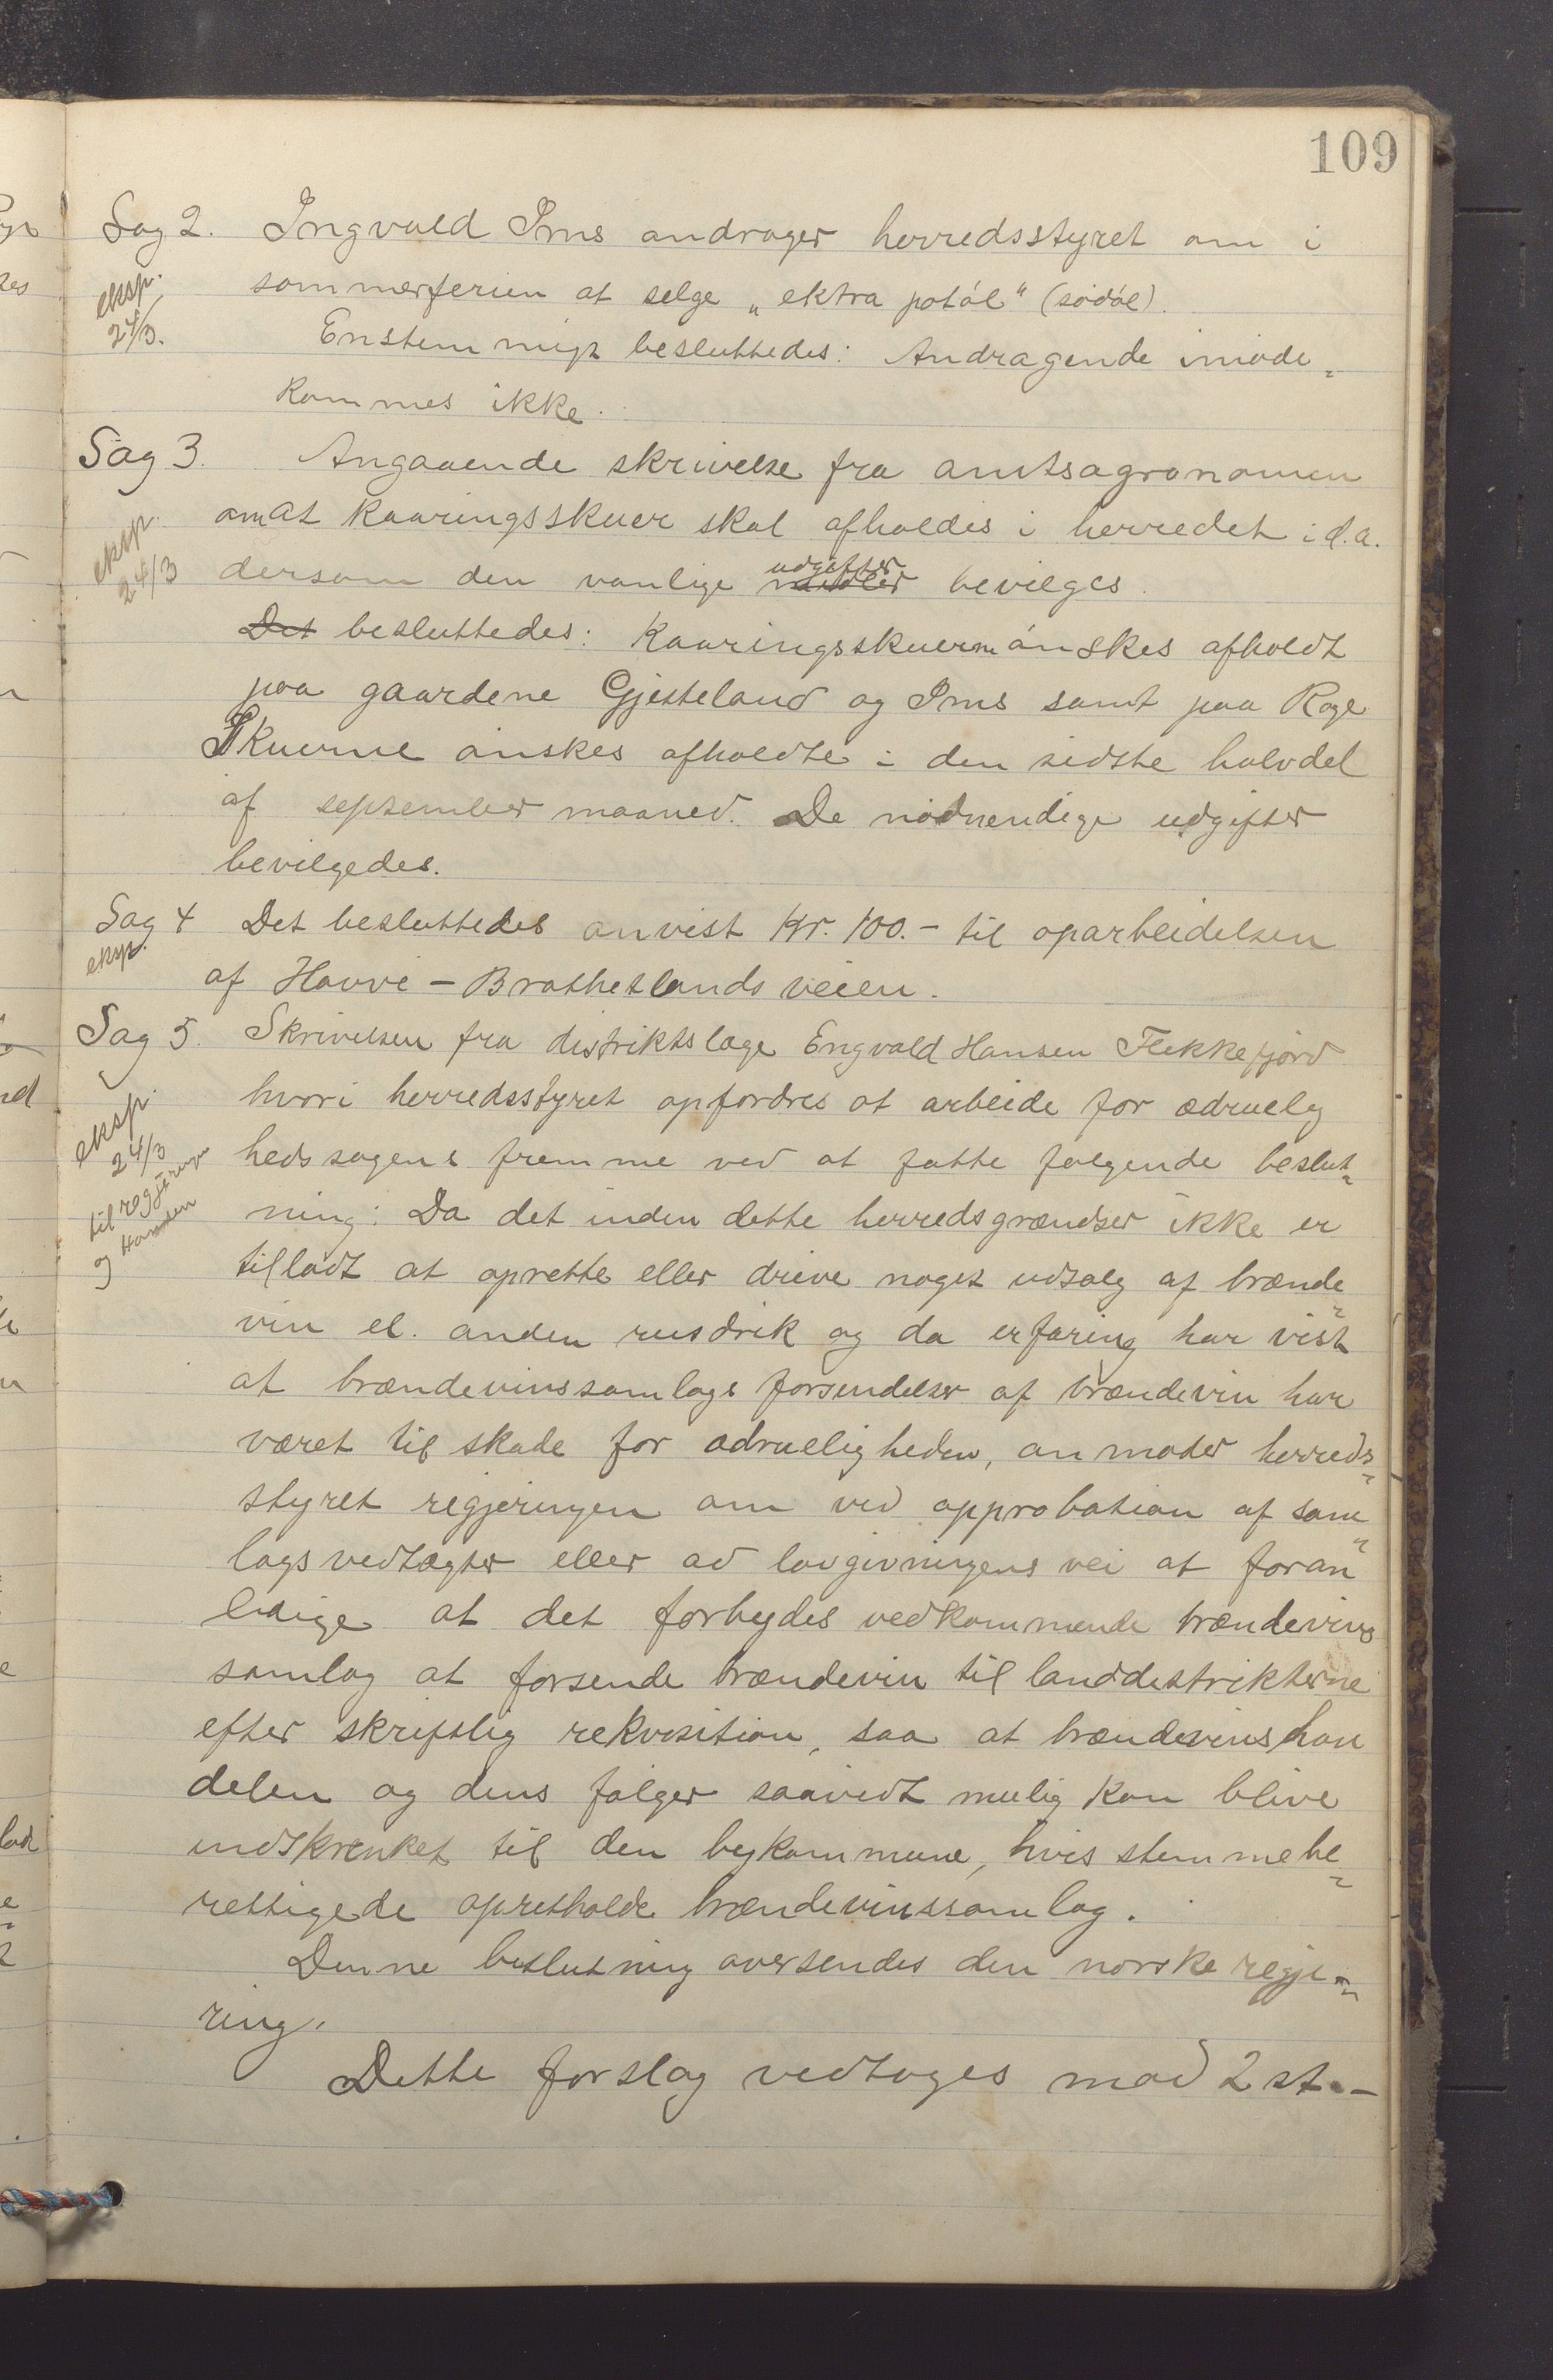 109
Sag 2. Ingvald Ims andrager herredsstyret om i
eksp. 24/3.
sommerferien at selge „ektra potøl" (sødøl).
Enstemmigt besluttedes: Andragende imøde-
kommes ikke.
Sag 3. Angaaende skrivelse fra amtsagronomen
eksp. 24/3
om at kaaringsskuer skal afholdes i herredet i d.a.
dersom den vanlige udgifter bevilges.
Det besluttedes: Kaaringsskuerne ønskes afholdt
paa gaardene Gjesteland og Ims samt paa Rage
Skuerne ønskes afholdte i den sidste halvdel
af september maaned. De nødvendige udgifter
bevilgedes.
Sag 4 Det besluttedes anvist Kr. 100.- til oparbeidelsen
eksp.
af Hovve - Brathetlands veien.
Sag 5. Skrivelsen fra distriktslage Engvald Hansen Flekkefjord
hvori herredsstyret opfordres at arbeide for ædruelig
eksp. 24/3 til regjeringen og Hansen
hedssagens fremme ved at fatte følgende beslut-
ning: Da det inden dette herredsgrændser ikke er
tilladt at oprette eller drive noget udsalg af brænde-
vin el. anden rusdrik og da erfaring har vist
at brændevinssamlags forsendelser af brændevin har
været til skade for ædrueligheden, anmoder herreds-
styret regjeringen om ved approbation af sam-
lagsvedtægter eller ad lovgivningens vei at foran-
ledige at det forbydes vedkommende brændevins
samlag at forsende brændevin til landdistrikterne
efter skriftlig rekvisition, saa at brændevinshan
delen og dens følger saavidt mulig kan blive
indskrænket til den bykommune, hvis stemmebe-
rettigede opretholde brændevinssamlag.
Denne beslutning oversendes den norske regje-
ring.
Dette forslag vedtoges mod 2 st.-